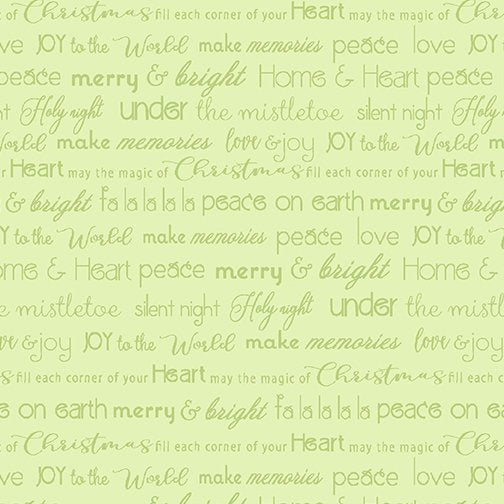 Christmas fill each corner of your Heart may the magic of Christmas
ve JOY to the World make memories peace love JOY
peace merry & bright Home & Heart peace
nt Holy night under the mistletoe silent night Holy
World make memories love & joy JOY to the World m
r Heart may the magic of Christmas fill each corner of your Heart
& bright fa la la la la peace on earth merry & brig
Y to the World make memories peace love JOY to the W
ome & Heart peace merry & bright Home &
e mistletoe silent night Holy night under the mistl
ve & joy JOY to the World make memories love & joy
s fill each corner of your Heart may the magic of Christmas fill each c
e on earth merry & bright fa la la la la peace on ea
of Christmas fill each corner of your Heart may the magic of
ve JOY to the World make memories peace love JOY